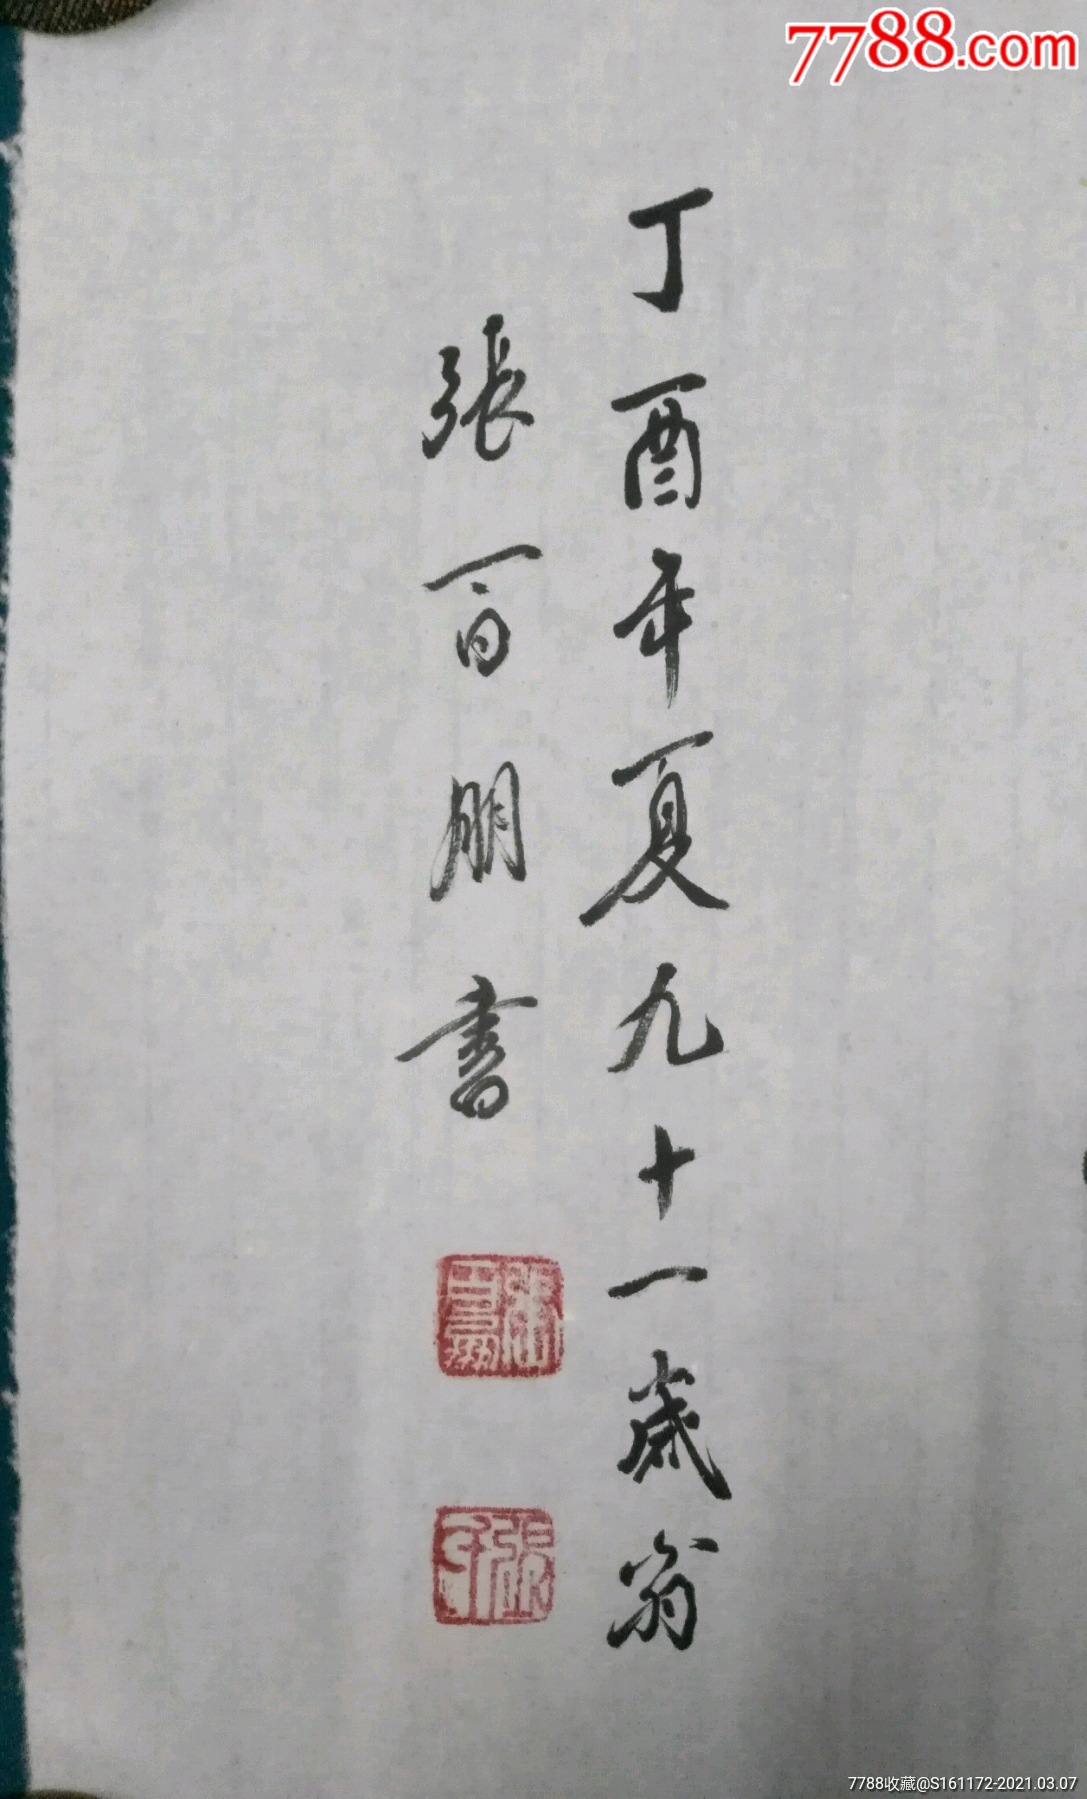 7788.com
丁酉年夏九十一歲翁
張百朋書
7788收藏@S161172-2021.03.07